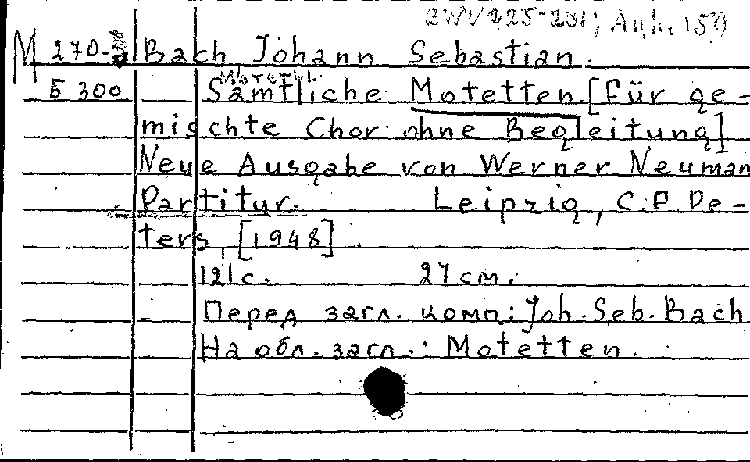 BWV 225-231; Anh. 159
M 270-
Bach, Johann Sebastian.
5 300
Sämtliche Motetten [für ge-
mischte Chor ohne Begleitung]
Neue Ausgabe von Werner Neuman
Partitur. Leipzig, C.F. Pe-
ters, [1948]
121 c. 27 cm.
Перед загл. комп: Joh. Seb. Bach
На обл. загл.: Motetten.